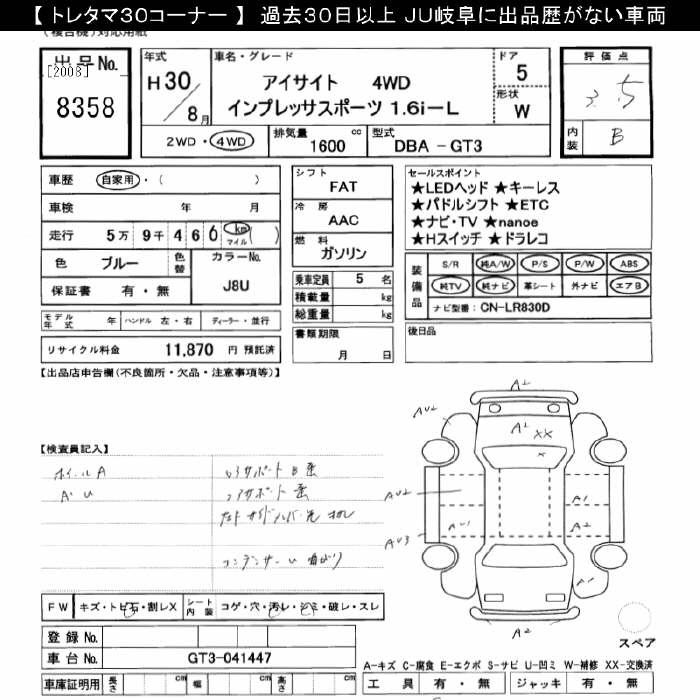 【 トレタマ30コーナー 】 過去30日以上 JU岐阜に出品歴がない車両
(複合機)対応用紙
出品No.
[2008]
8358
年式
H30/8月
車名・グレード
アイサイト 4WD
インプレッサスポーツ 1.6i-L
ドア
5
形状
W
2WD・4WD
排気量
1600 cc
型式
DBA - GT3
評価点
3.5
内装
B
車歴 自家用・( )
車検 年 月
走行 5万 9千 4 6 6 km マイル ( )
色 ブルー
色替
カラーNo.
J8U
保証書 有・無
モデル年式 年
ハンドル 左・右
ディーラー・並行
リサイクル料金 11,870 円 預託済
シフト
FAT
冷房
AAC
燃料
ガソリン
乗車定員 5 名
積載量 kg
総重量 kg
書類期限
月 日
セールスポイント
★LEDヘッド ★キーレス
★パドルシフト ★ETC
★ナビ・TV ★nanoe
★Hスイッチ ★ドラレコ
装備品
S/R 純A/W P/S P/W ABS
純TV 純ナビ 革シート 外ナビ エアB
ナビ型番 CN-LR830D
後日品
【出品店申告欄(不良箇所・欠品・注意事項等)】
【検査員記入】
ホイールA
A・U
コアサポート
サポート
コンデンサー U 曲がり
A2
AU2
A2
XX
×
AU2
A1
AU3
AU1
A2
A1
A2
FW キズ・トビ石・割レX
シート内装 コゲ・穴・汚レ・シミ・破レ・スレ
登録No.
車台No. GT3-041447
車庫証明用 長さ cm 幅 cm 高さ cm
スペア
A-キズ C-腐食 E-エクボ S-サビ U-凹ミ W-補修 XX-交換済
工具 有・無 ジャッキ 有・無